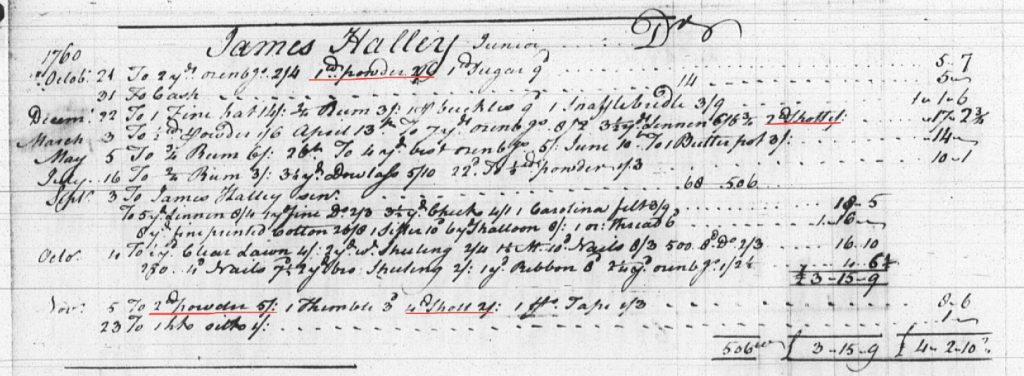 James Halley Junior Dr
1760
Octobr 21 To 2 yds ozenbgs 2/4 1 lb powder 2/6 1 lb Sugar 9d 5 - 7
31 To Cash 14 5 -
Decemr 22 To 1 Fine hat 14/: Rum 3/: buckles 9 1 Snaffle bridle 3/9 1 - 1 - 6
March 3 To ½ lb Powder 1/6 April 13th To 7 yds ozenbgs 8/2 3½ yds Linnen 2 lb Shott 1/: 17 - 2¾
May 5 To ¾ Rum 6/: 28th To 4 yds best ozenbgs 5/: June 10 To 1 Butter pot 3/: 14 -
July 16 To ¾ Rum 3/: 3½ yds Dowlass 5/10 22d To ½ lb powder 1/3 10 - 1
Sept 3 To James Halley senr 68 506
To 5 yds Linnen 8/4 1 yd fine Do 2/3 3½ yds Checks 4/1 1 Carolina felt 3/9 18 - 5
8 yds fine printed Cotton 26/8 1 Sifter 10d 6 yds Shalloon 8/: 1 oz Thread 6d 1 - 16 -
Octor 4 To ½ yd Clear Lawn 4/: 2 yds Sheeting 2/4 10d Nails 8/3 500 8d Do 2/3 16 - 10
250 4d Nails 7½ 2 yds bro Sheeting 2/: 1 yd Ribbon 8d 2¼ yds ozenbgs 1/2½ 4 - 6½
£ 3 - 15 - 9
Novr 5 To 2 lb powder 5/: 1 Thimble 3d 4 lb Shott 2/: 1 ps Tape 1/3 8 - 6
23 To 1 hk silk 1/: 1 -
506 £ 3 - 15 - 9 £ 4 - 2 - 10